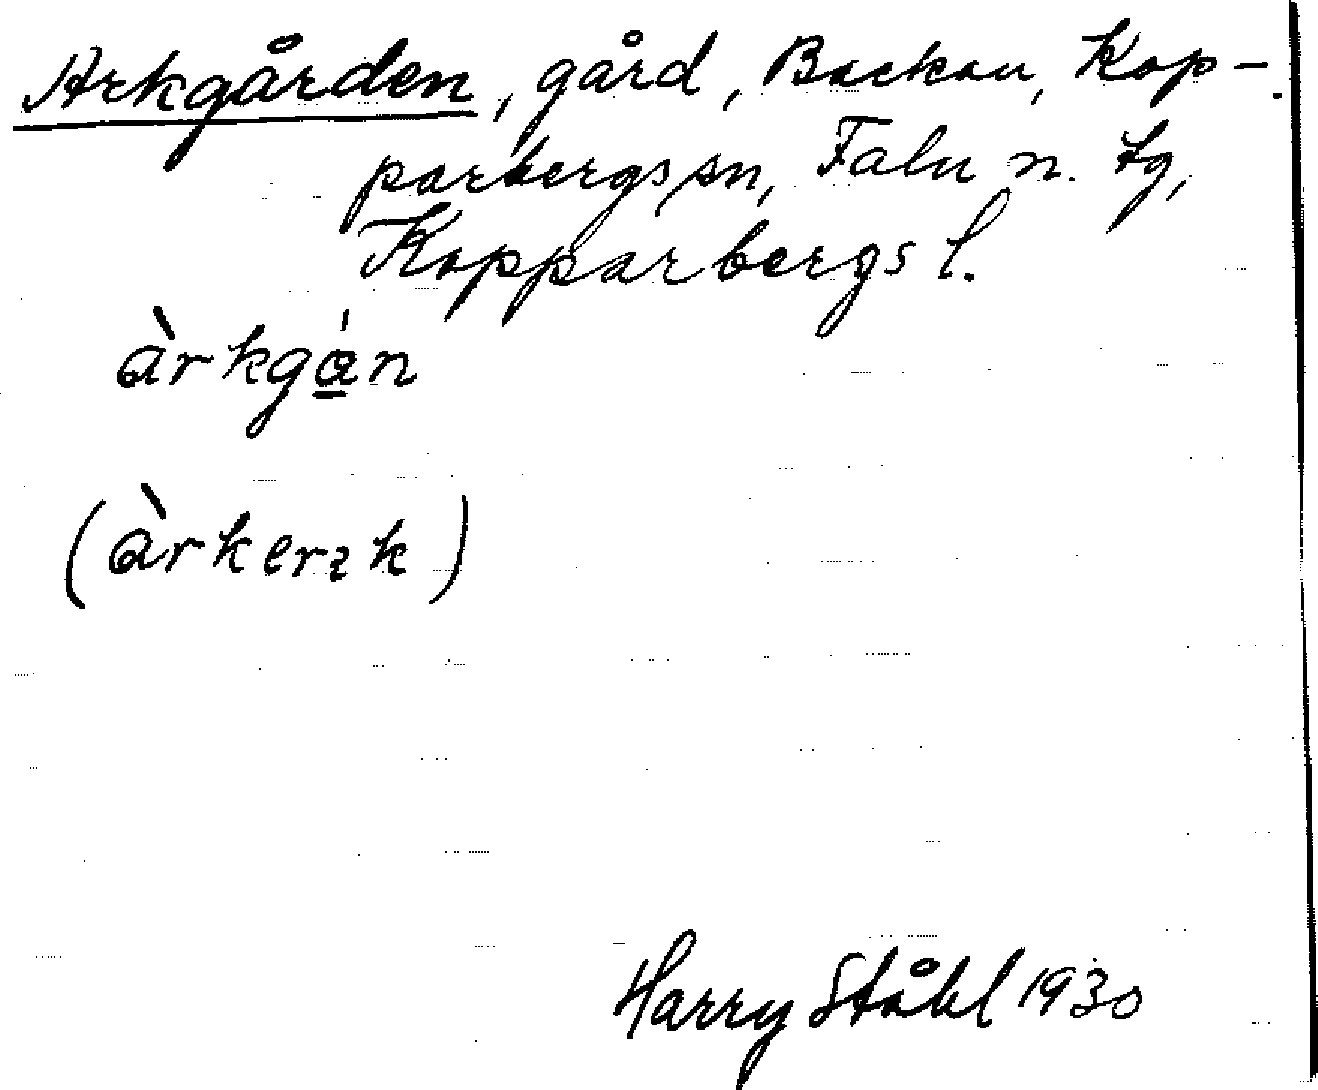 Arkgården, gård, Backau, Kop-
parbergs sn, Falu n. tg,
Kopparbergs l.
àrkgá̱n
(àrkerɿk)
Harry Ståhl 1930